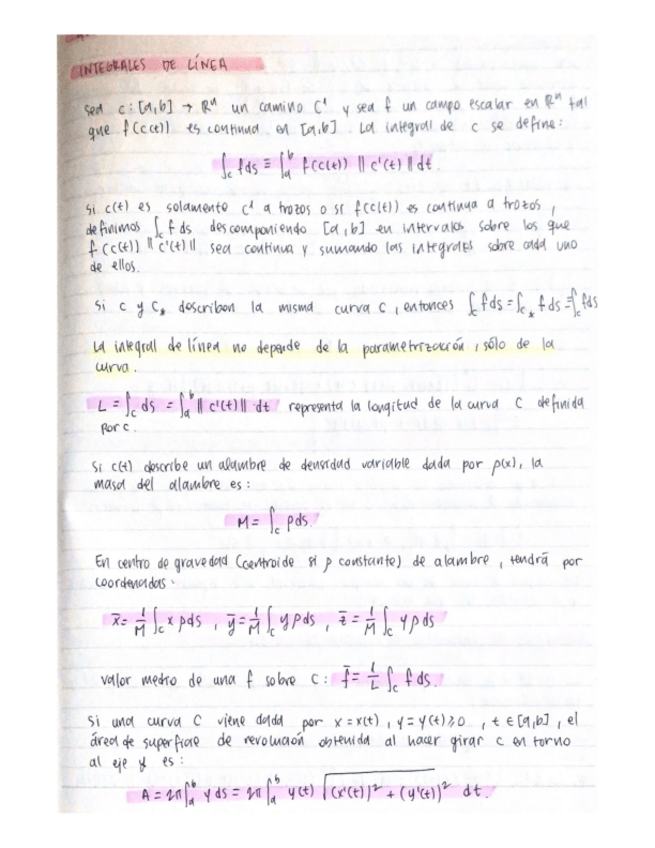 INTEGRALES DE LÍNEA
sea c: [a,b] → Rⁿ un camino C¹ y sea f un campo escalar en Rⁿ tal
que f(c(t)) es continua en [a,b]. La integral de c se define:
∫_c f ds ≡ ∫_a^b f(c(t)) ‖c'(t)‖ dt.
Si c(t) es solamente C¹ a trozos o si f(c(t)) es continua a trozos,
definimos ∫_c f ds descomponiendo [a,b] en intervalos sobre los que
f(c(t)) ‖c'(t)‖ sea continua y sumando las integrales sobre cada uno
de ellos.
Si c y c* describen la misma curva C, entonces ∫_c f ds = ∫_c* f ds = ∫_C f ds
La integral de línea no depende de la parametrización, sólo de la
curva.
L = ∫_c ds = ∫_a^b ‖c'(t)‖ dt representa la longitud de la curva C definida
por c.
Si c(t) describe un alambre de densidad variable dada por ρ(x), la
masa del alambre es:
M = ∫_c ρ ds.
En centro de gravedad (centroide si ρ constante) de alambre, tendrá por
coordenadas:
x̄ = 1/M ∫_c x ρ ds , ȳ = 1/M ∫_c y ρ ds , z̄ = 1/M ∫_c y ρ ds
valor medio de una f sobre C: f̄ = 1/L ∫_c f ds.
Si una curva C viene dada por x = x(t), y = y(t) ≥ 0, t ∈ [a,b], el
área de superficie de revolución obtenida al hacer girar C en torno
al eje es:
A = 2π ∫_a^b y ds = 2π ∫_a^b y(t) √((x'(t))² + (y'(t))²) dt.